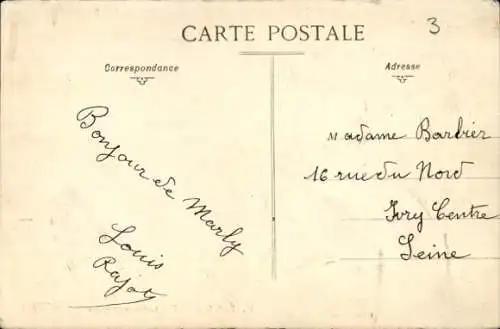 CARTE POSTALE
3
Correspondance
Adresse
Bonjour de Marly
Louis
Madame Barbier
16 rue du Nord
Ivry Centre
Seine